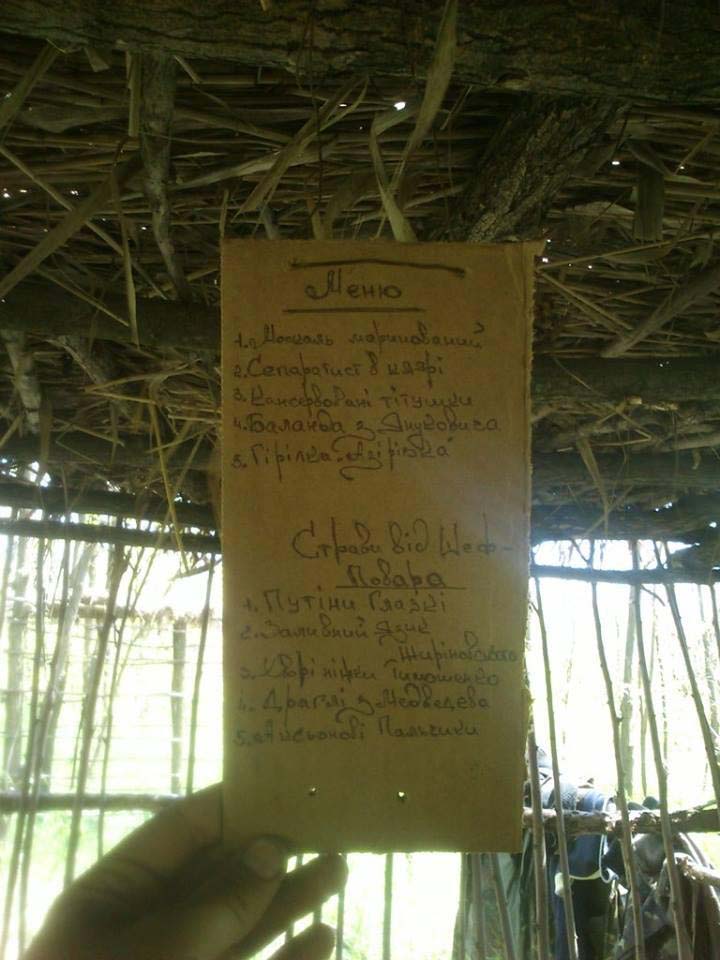 Меню
1. Москаль маринований
2. Сепаратист в клярі
3. Консервовані тітушки
4. Баланда з Януковича
5. Гірілка "Азірівка"
Страви від Шеф-
Повара
1. Путіни Глазкі
2. Заливний Язик
Жиріновського
3. Хворі ніжки Тимошенко
4. Драглі з Медведева
5. Пальчики